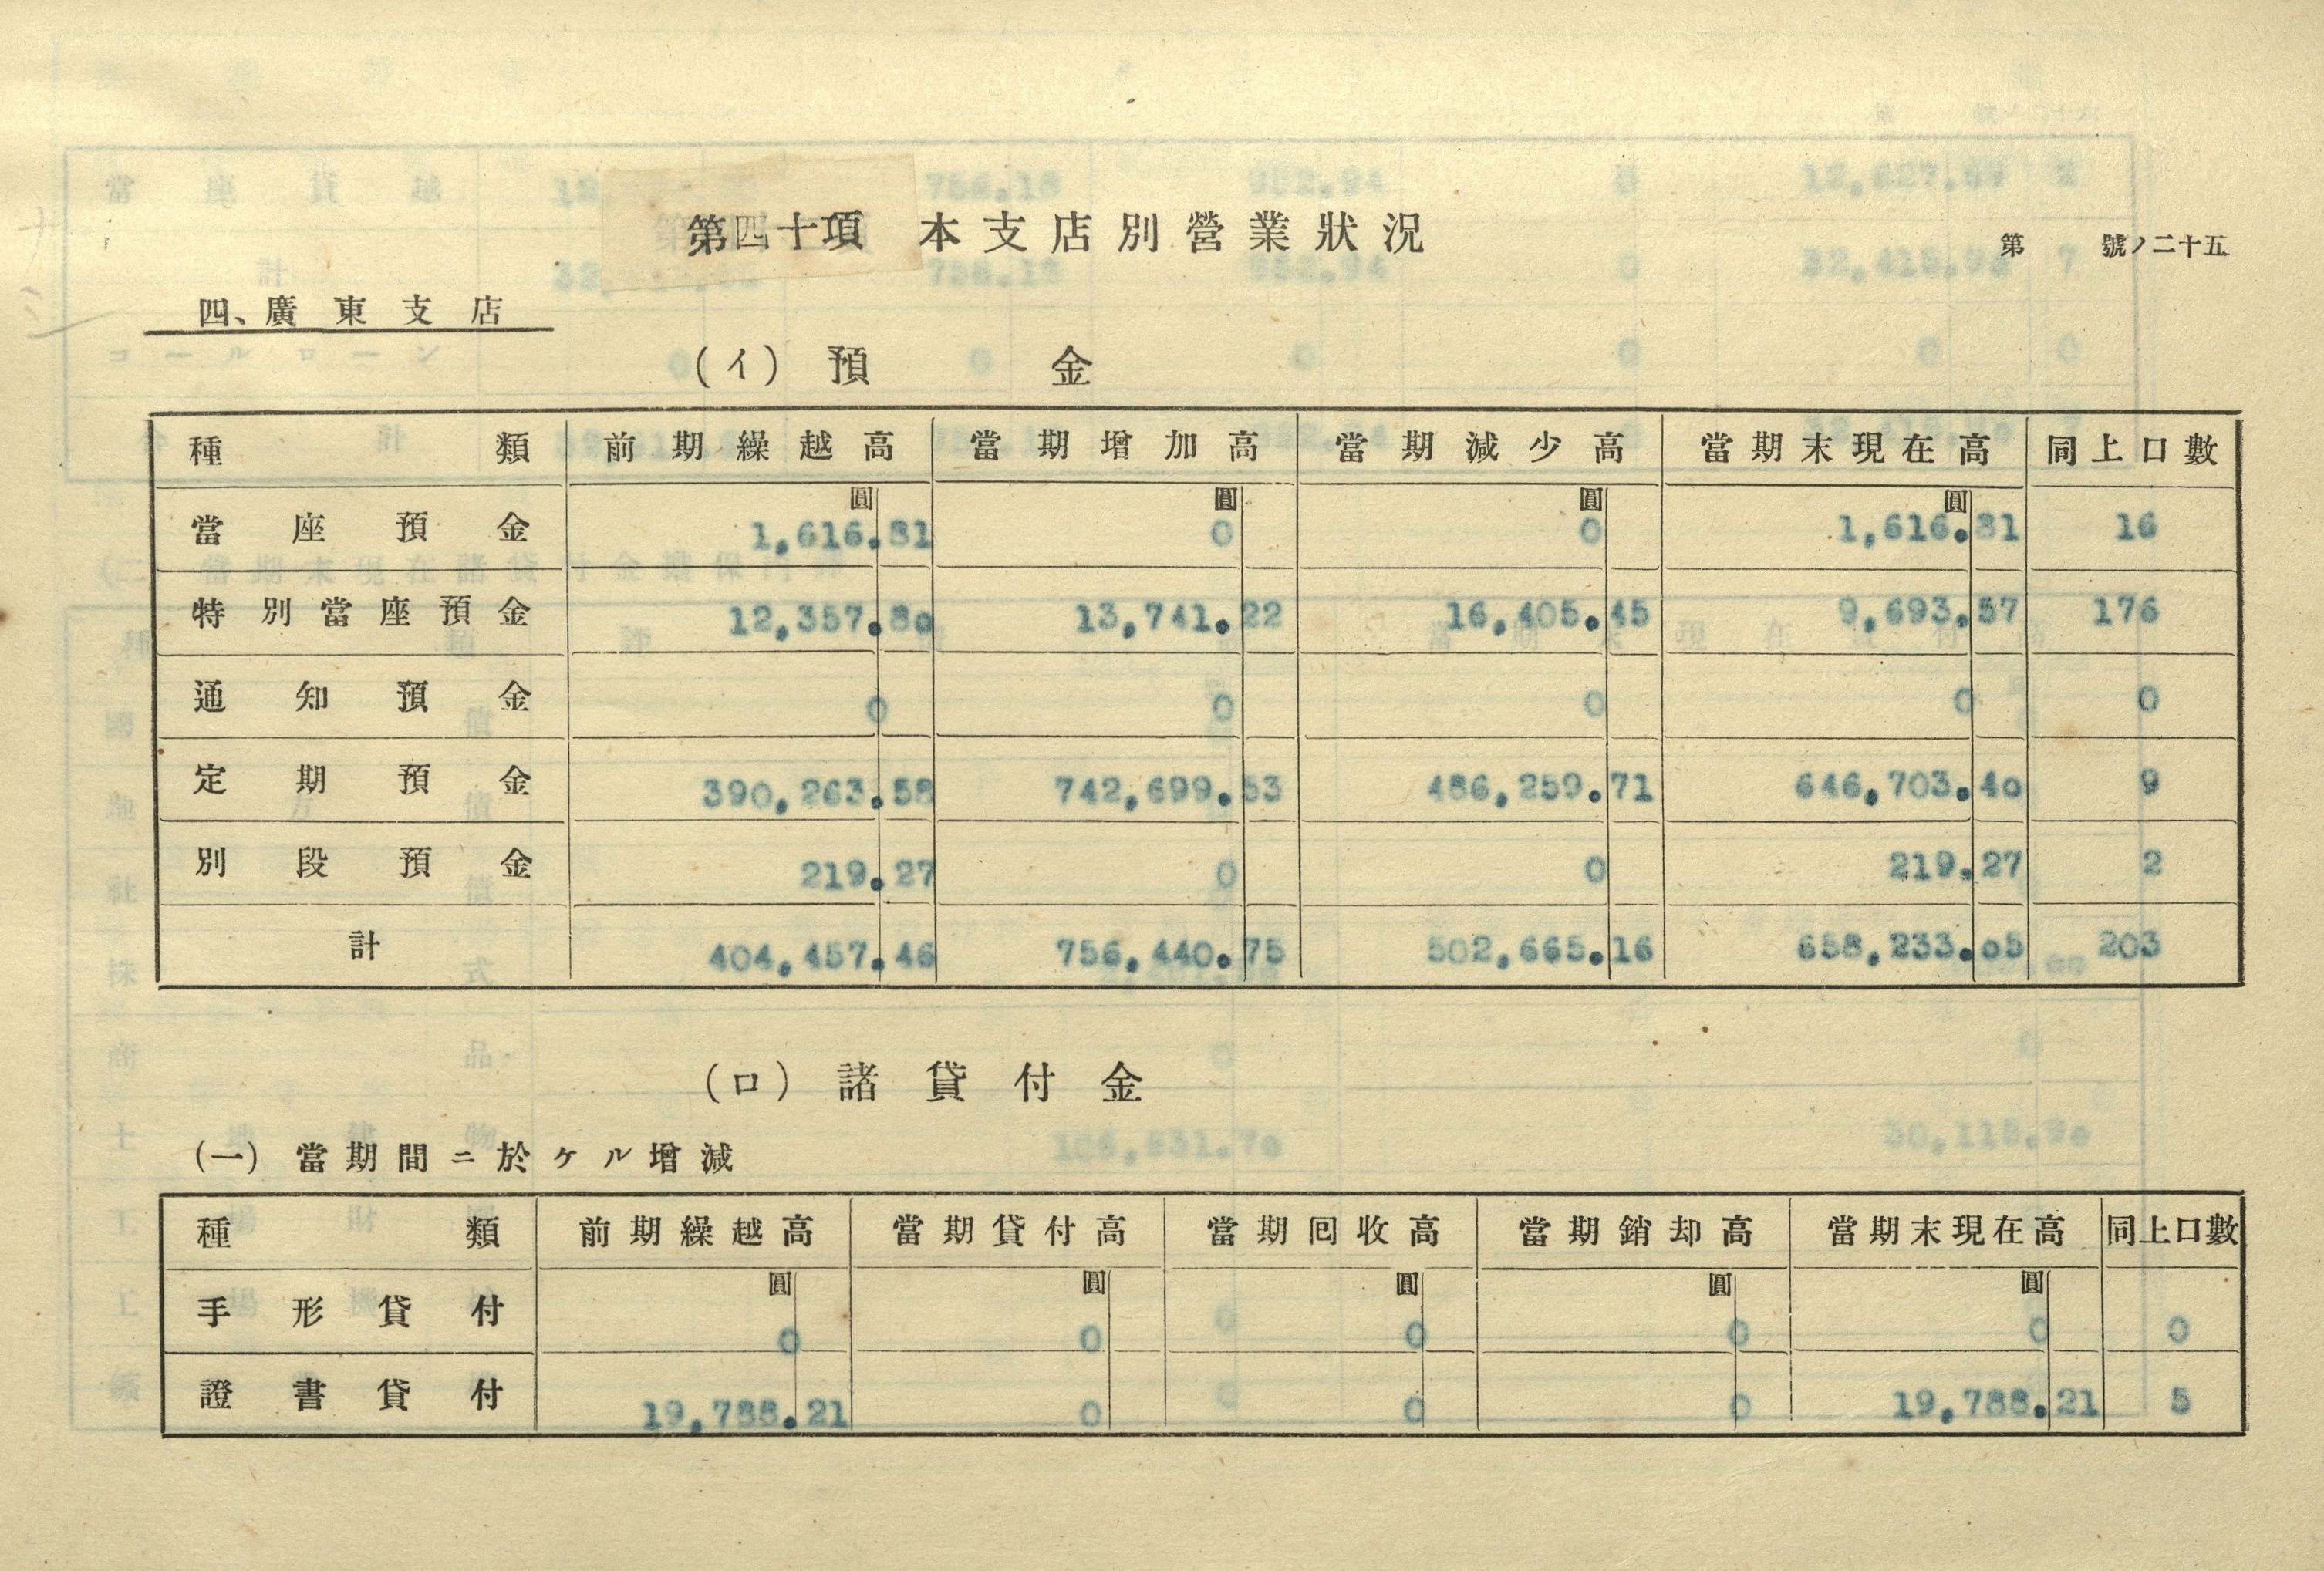 第四十項 本支店別營業狀況
第 號ノ二十五
四、廣東支店
(イ) 預金
種類 前期繰越高 當期增加高 當期減少高 當期末現在高 同上口數
圓 圓 圓 圓
當座預金 1,616.81 0 0 1,616.81 16
特別當座預金 12,357.80 13,741.22 16,405.45 9,693.57 176
通知預金 0 0 0 0 0
定期預金 390,263.58 742,699.53 486,259.71 646,703.40 9
別段預金 219.27 0 0 219.27 2
計 404,457.46 756,440.75 502,665.16 658,233.05 203
(ロ) 諸貸付金
(一) 當期間ニ於ケル增減
種類 前期繰越高 當期貸付高 當期回收高 當期銷却高 當期末現在高 同上口數
圓 圓 圓 圓 圓
手形貸付 0 0 0 0 0 0
證書貸付 19,788.21 0 0 0 19,788.21 5